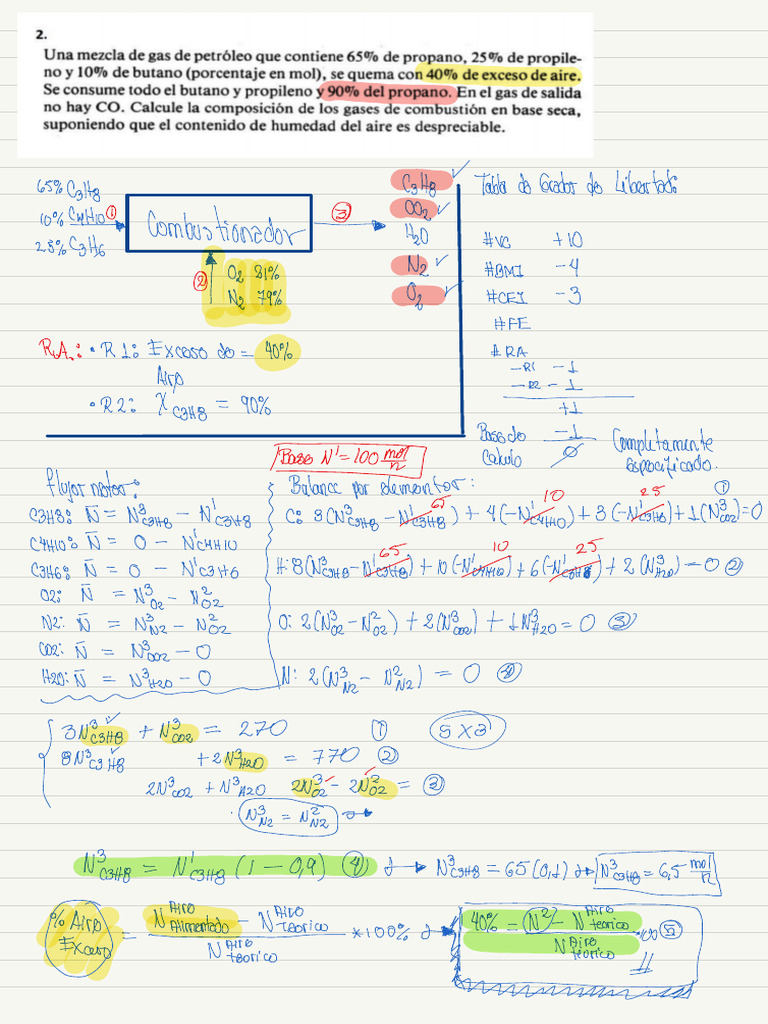 2.
Una mezcla de gas de petróleo que contiene 65% de propano, 25% de propile-
no y 10% de butano (porcentaje en mol), se quema con 40% de exceso de aire.
Se consume todo el butano y propileno y 90% del propano. En el gas de salida
no hay CO. Calcule la composición de los gases de combustión en base seca,
suponiendo que el contenido de humedad del aire es despreciable.
65% C3H8
10% C4H10 ①
25% C3H6
Combustionador
③
C3H8 ✓
CO2 ✓
H2O
N2 ✓
O2 ✓
②
O2 21%
N2 79%
R.A.: • R1: Exceso de = 40%
Aire
• R2: X C3H8 = 90%
Tabla de Grados de Libertad:
#VC +10
#BMI -4
#CEI -3
#FE
#RA
-R1 -1
-R2 -1
+1
Base de -1
Calculo 0
Completamente
especificado.
Base N¹ = 100 mol/h
Flujos netos:
C3H8: N̄ = N³C3H8 - N¹C3H8
C4H10: N̄ = 0 - N¹C4H10
C3H6: N̄ = 0 - N¹C3H6
O2: N̄ = N³O2 - N²O2
N2: N̄ = N³N2 - N²N2
CO2: N̄ = N³CO2 - 0
H2O: N̄ = N³H2O - 0
Balance por elementos:
65 10 25 ①
C: 3(N³C3H8 - N¹C3H8) + 4(-N¹C4H10) + 3(-N¹C3H6) + 1(N³CO2) = 0
65 10 25
H: 8(N³C3H8 - N¹C3H8) + 10(-N¹C4H10) + 6(-N¹C3H6) + 2(N³H2O) = 0 ②
O: 2(N³O2 - N²O2) + 2(N³CO2) + 1N³H2O = 0 ③
N: 2(N³N2 - N²N2) = 0 ④
3N³C3H8 + N³CO2 = 270 ①
5x3
8N³C3H8 + 2N³H2O = 770 ②
2N³CO2 + N³H2O 2N³O2 - 2N²O2 = ③
N³N2 = N²N2
N³C3H8 = N¹C3H8 (1 - 0,9) ④ → N³C3H8 = 65(0,1) → N³C3H8 = 6,5 mol/h
% Aire Exceso = (N Aire Alimentado - N Aire teorico) / N Aire teorico * 100% → 40% = (N² - N Aire teorico) / N Aire teorico *100 ⑤